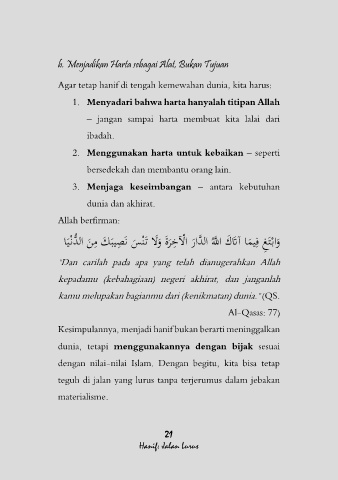 b. Menjadikan Harta sebagai Alat, Bukan Tujuan
Agar tetap hanif di tengah kemewahan dunia, kita harus:
1. Menyadari bahwa harta hanyalah titipan Allah
– jangan sampai harta membuat kita lalai dari
ibadah.
2. Menggunakan harta untuk kebaikan – seperti
bersedekah dan membantu orang lain.
3. Menjaga keseimbangan – antara kebutuhan
dunia dan akhirat.
Allah berfirman:
وَابْتَغِ فِيمَا آتَاكَ اللَّهُ الدَّارَ الْآخِرَةَ وَلَا تَنْسَ نَصِيبَكَ مِنَ الدُّنْيَا
"Dan carilah pada apa yang telah dianugerahkan Allah
kepadamu (kebahagiaan) negeri akhirat, dan janganlah
kamu melupakan bagianmu dari (kenikmatan) dunia." (QS.
Al-Qasas: 77)
Kesimpulannya, menjadi hanif bukan berarti meninggalkan
dunia, tetapi menggunakannya dengan bijak sesuai
dengan nilai-nilai Islam. Dengan begitu, kita bisa tetap
teguh di jalan yang lurus tanpa terjerumus dalam jebakan
materialisme.
29
Hanif: Jalan Lurus